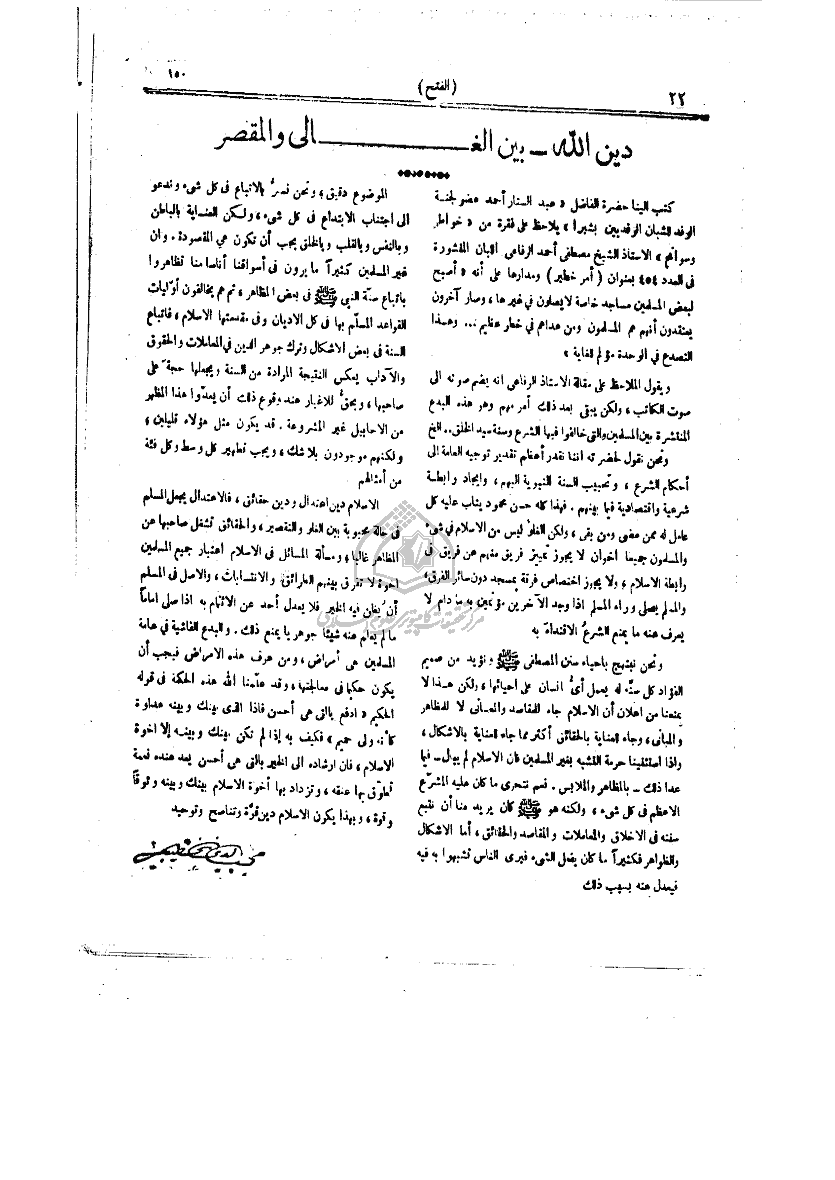 ٢٢
(الفتح)
١٥٠
دين الله ـ بين الغـــالى والمقصر
كتب الينا حضرة الفاضل « عبد الستار أحمد عضو لجنة
الوفد للشبان الوفديين بشبرا » يلاحظ على فقرة من « خواطر
وسوانح » الاستاذ الشيخ مصطفى أحمد الرفاعى اللبان المنشورة
فى العدد ٤٥٤ بعنوان ( أمر خطير ) ومدارها على أنه « أصبح
لبعض المسلمين مساجد خاصة لا يصلون في غيرها ، وصار آخرون
يعتقدون أنهم هم المسلمون ومن عداهم في خطر عظيم ... وهــذا
التصدع في الوحدة مؤلم للغاية »
ويقول الملاحظ على مقالة الاستاذ الرفاعى انه يضم صوته الى
صوت الكاتب ، ولكن يبقى بعد ذلك أمر مهم وهر هذه البدع
المنتشرة بين المسلمين والتى خالفوا فيها الشرع وسنة سيد الخلق .. الخ
ونحن نقول لحضرته اننا نقدر أعظم تقدير توجيه العامة الى
أحكام الشرع ، وتحبيب السنة النبوية اليهم ، وايجاد رابطة
شرعية واقتصادية فيما بينهم . فهذا كله حسن محمود يثاب عليه كل
عامل له ممن مضى ومن بقى ، ولكن الغلوّ ليس من الاسلام في شىء
والمسلمون جميعا اخوان لا يجوز تمييز فريق منهم عن فريق فى
رابطة الاسلام ، ولا يجوز اختصاص فرقة بمسجد دون سائر الفرق ،
والمسلم يصلى وراء المسلم اذا وجد الآخرين مؤتمين به ما دام لا
يعرف عنه ما يمنع الشرعُ الاقتداء به
ونحن نبتهج باحياء سنن المصطفى ﷺ ونؤيد من صميم
الفؤاد كل سنّة له يعمل أىُّ انسان على احيائها ، ولكن هــذا لا
يمنعنا من اعلان أن الاسلام جاء للمقاصد والمعــانى لا للمظاهر
و المبانى ، وجاء للعناية بالحقائق أكثر مما جاء للعناية بالاشكال ،
واذا استثنينا حرمة التشبه بغير المسلمين فان الاسلام لم يبال ـ فيما
عدا ذلك ـ بالمظاهر والملابس . نعم نتحرى ما كان عليه المشرّع
الاعظم فى كل شىء ، ولكنه هو ﷺ كان يريد منا أن نتبع
سننه فى الاخلاق والمعاملات و المقاصد والحقائق ، أما الاشكال
والظواهر فكثيراً ما كان يفعل الشىء فيرى الناس تشبهوا به فيه
فيعدل عنه بسبب ذلك
الموضوع دقيق ، ونحن نسرُّ بالاتباع فى كل شىء وندعو
الى اجتناب الابتداع فى كل شىء ، ولكن العنــاية بالباطن
و بالنفس و بالقلب و بالخلق يجب أن تكون هي المقصودة . وان
غير المسلمين كثيراً ما يرون فى أسواقنا أناسا منا تظاهروا
باتباع سنّة النبى ﷺ فى بعض المظاهر ، ثم هم يخالفون أوّليات
القواعد المسلّم بها فى كل الاديان وفى مقدمتها الاسلام ، فاتباع
السنة فى بعض الاشكال وترك جوهر الدين في المعاملات والحقوق
والآداب يعكس النتيجة المرادة من السنة ويجعلها حجة على
صاحبها ، ويحقُّ للاغيار عند وقوع ذلك أن يعدّوا هذا المظهر
من الاحابيل غير المشروعة . قد يكون مثل هؤلاء قليلين ،
ولكنهم موجودون بلا شك ، ويجب تطهير كل وسط وكل فئة
من أمثالهم
الاسلام دين اعتدال ودين حقائق ، فالاعتدال يجعل المسلم
فى حالة محبوبة بين الغلو والتقصير ، والحقائق تشغل صاحبها عن
المظاهر غالبا ، ومسألة المسائل فى الاسلام اعتبار جميع المسلمين
اخوة لا تفرق بينهم الطرائق والانتسابات ، والاصل فى المسلم
أن يُظن فيه الخير فلا يعدل أحد عن الائتمام به اذا صلى اماماً
ما لم يعلم عنه شيئا جوهريا يمنع ذلك . والبدع الفاشية في عامة
المسلمين هى أمراض ، ومن عرف هذه الامراض فيجب أن
يكون حكيما فى معالجتها ، وقد علّمنا الله هذه الحكمة فى قوله
الحكيم « ادفع بالتى هى أحسن فاذا الذى بينك و بينه عداوة
كأنه ولى حميم » فكيف به إذا لم تكن بينك و بينــه إلا اخوة
الاسلام ، فان ارشاده الى الخير بالتى هى أحسن يعد عنده نعمة
تطوّق بها عنقه ، وتزداد بها أخوة الاسلام بينك وبينه وثوقاً
وقوة ، وبهذا يكون الاسلام دين قوّة وتناصح وتوحيد
محب الدين الخطيب